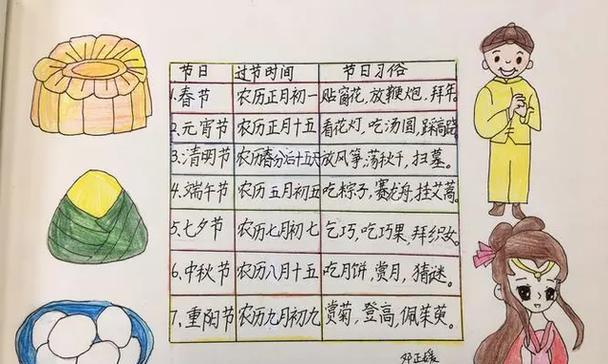 节日 过节时间 节日习俗
1.春节 农历正月初一 贴窗花,放鞭炮,拜年。
2.元宵节 农历正月十五 看花灯,吃汤圆,踩高跷
3.清明节 农历春分后十五天 放风筝,荡秋千,扫墓。
4.端午节 农历五月初五 吃粽子,赛龙舟,挂艾蒿。
5.七夕节 农历七月初七 乞巧,吃巧果,拜织女。
6.中秋节 农历八月十五 吃月饼,赏月,猜谜。
7.重阳节 农历九月初九 赏菊,登高,佩茱萸。